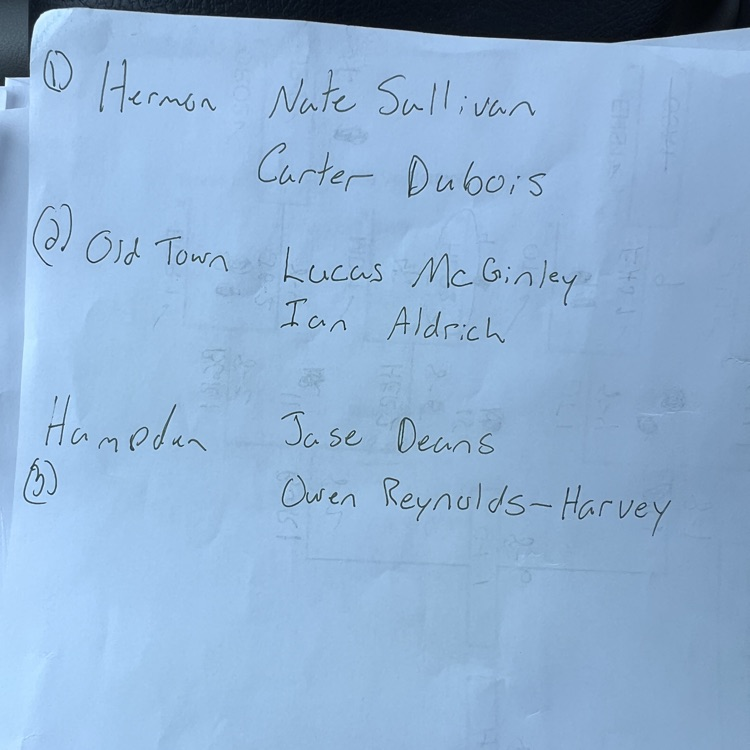 (1) Hermon Nate Sullivan
Carter Dubois
(2) Old Town Lucas McGinley
Ian Aldrich
Hampden Jase Deans
(3) Owen Reynolds-Harvey